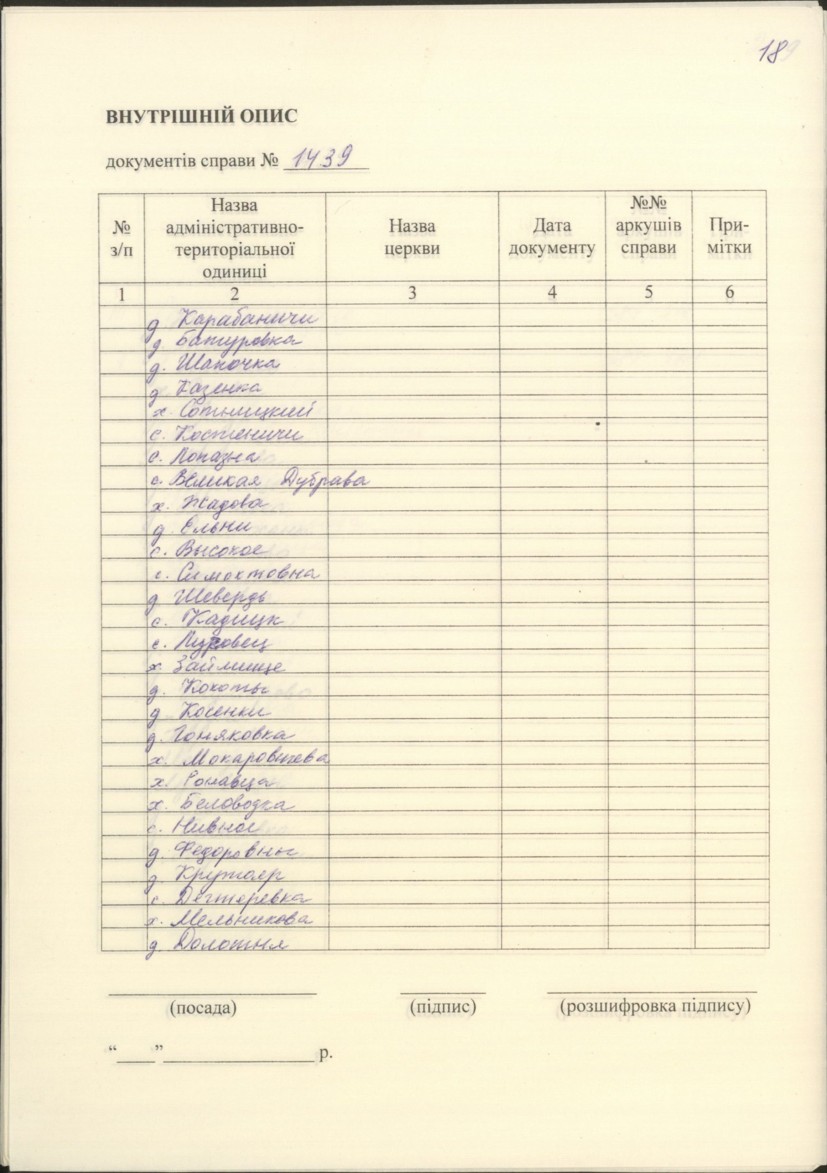 18
ВНУТРІШНІЙ ОПИС
документів справи № 1439
№ з/п
Назва адміністративно-територіальної одиниці
Назва церкви
Дата документу
№№ аркушів справи
При-мітки
1 2 3 4 5 6
д. Карабаничи
д. Батуровка
д. Шапочка
д. Казенка
х. Сотницкий
с. Костеничи
с. Лопазна
с. Великая Дубрава
х. Жадова
д. Ельни
с. Высокое
с. Симонтовка
д. Шевердь
с. Кадицк
с.
х. Займище
д. Кохоты
д. Косенки
д. Гоняковка
х. Мокаровичева
х.
х. Беловодка
с. Нивное
д.
д. Крутояр
с. Дегтеревка
х. Мельникова
д. Долотня
(посада) (підпис) (розшифровка підпису)
“___”________________ р.